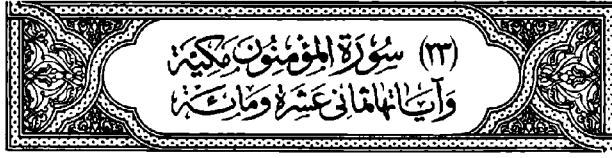 (٢٣) سُورَةُ المُؤْمِنُونَ مَكيَّة
وَآيَاتُهَا ثَمَانِي عَشْرَةَ وَمِائَة